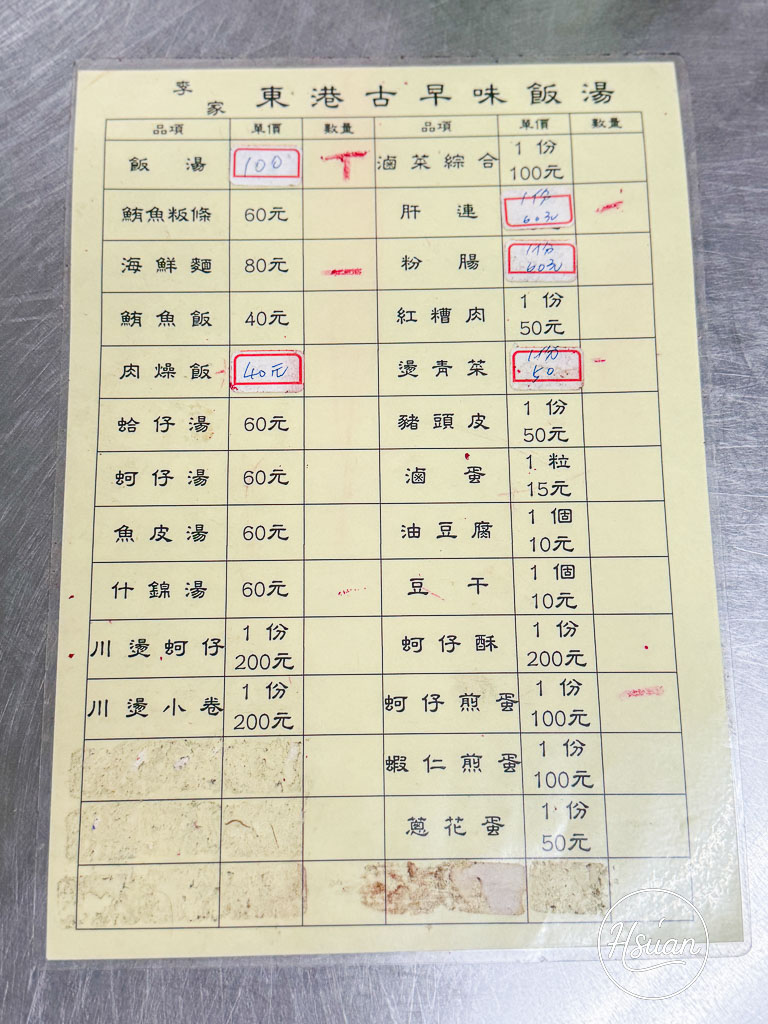 李家 東港古早味飯湯
品項 單價 數量 品項 單價 數量
飯湯 100 滷菜綜合 1份 100元
鮪魚粄條 60元 肝連 1份 60元
海鮮麵 80元 粉腸 1份 60元
鮪魚飯 40元 紅糟肉 1份 50元
肉燥飯 40元 燙青菜 1份 50
蛤仔湯 60元 豬頭皮 1份 50元
蚵仔湯 60元 滷蛋 1粒 15元
魚皮湯 60元 油豆腐 1個 10元
什錦湯 60元 豆干 1個 10元
川燙蚵仔 1份 200元 蚵仔酥 1份 200元
川燙小卷 1份 200元 蚵仔煎蛋 1份 100元
蝦仁煎蛋 1份 100元
蔥花蛋 1份 50元
Hsuan